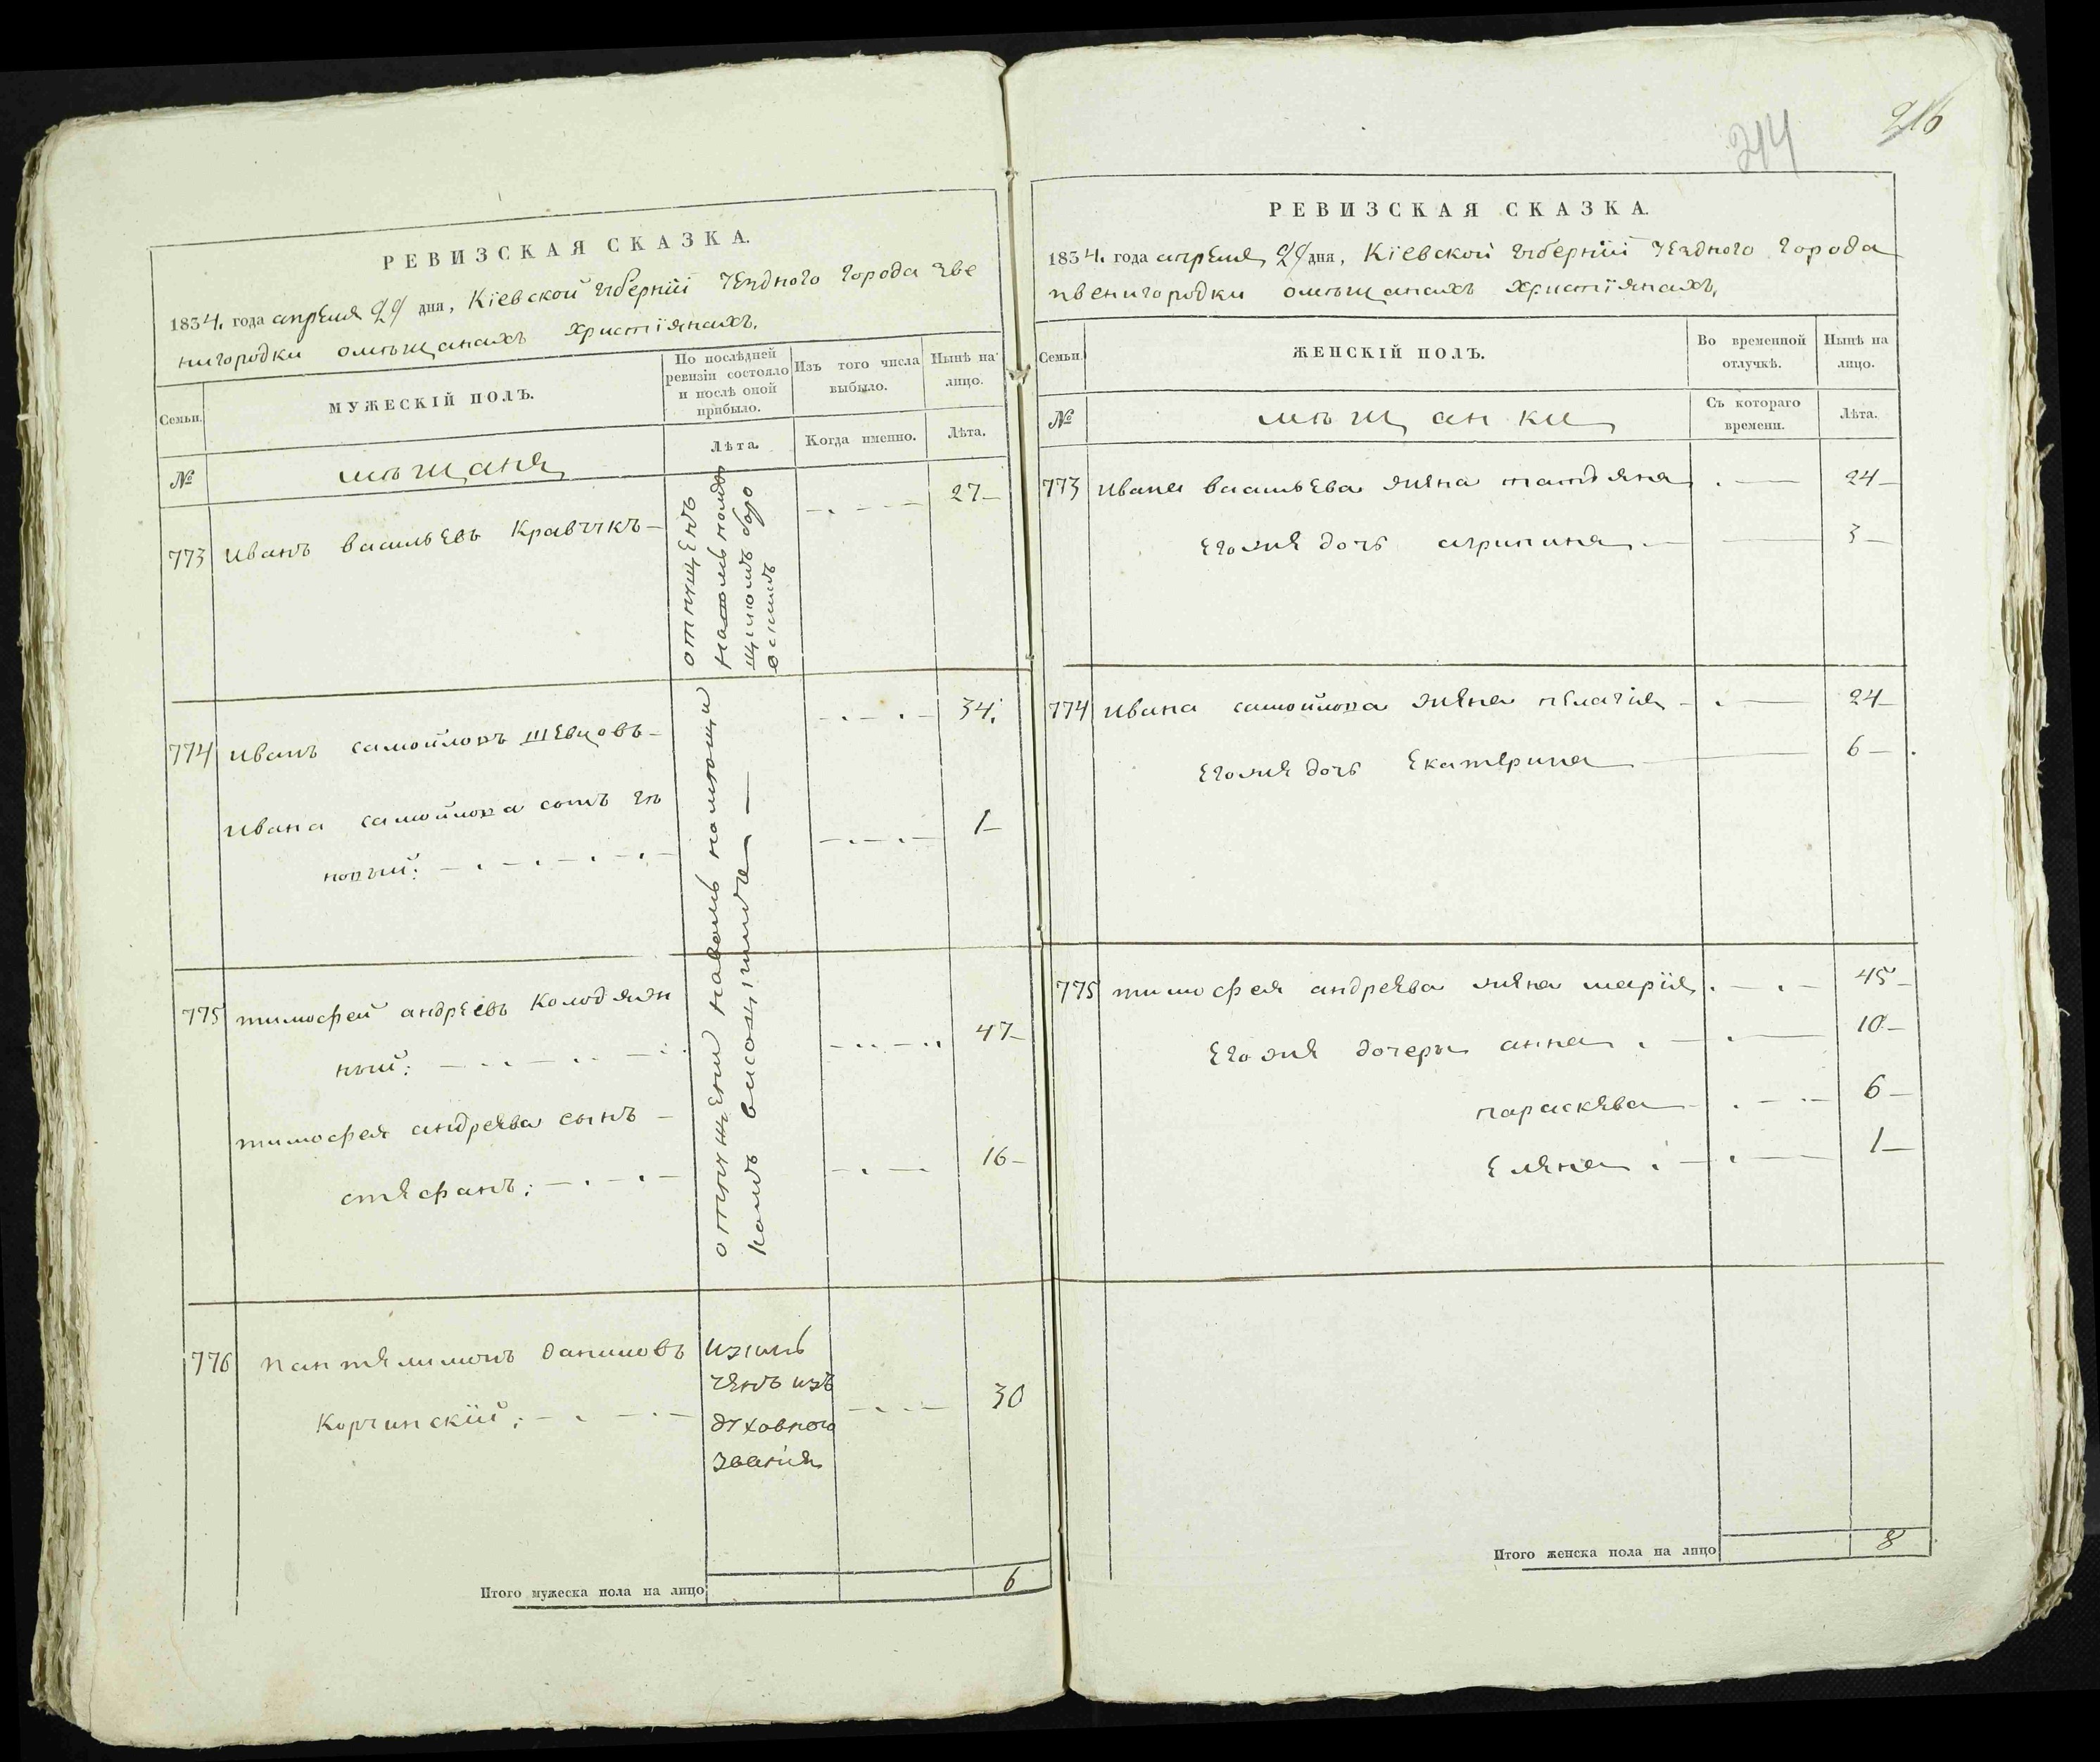 216
244
РЕВИЗСКАЯ СКАЗКА.
1834. года апреля 29 дня, Кіевской губерніи уездного города зве
нигородки омѣщанахъ христіянахъ.
Семьи.
МУЖЕСКІЙ ПОЛЪ.
По послѣдней ревизіи состояло и послѣ оной прибыло.
Изъ того числа выбыло.
Нынѣ на лицо.
№
мѣщаня
Лѣта.
Когда именно.
Лѣта.
773 Иванъ васильевъ Кравчукъ — 27
отпущенъ
774 Иванъ самойловъ Шевцовъ — 34.
Ивана самойлова сынъ
1
отпущени наволь помющи
комъ
775 тимофей андреевъ Колодяжн
ный: 47
тимофея андреева сынъ —
стефанъ: 16
776 пантелимонъ даниловъ изклю
ченъ изъ
Корчинскій: 30
духовного
званія
Итого мужеска пола на лицо 6
РЕВИЗСКАЯ СКАЗКА.
1834. года апреля 29 дня, Кіевской губерніи уездного города
звенигородки омѣщанахъ христіянахъ,
Семьи.
ЖЕНСКІЙ ПОЛЪ.
Во временной отлучкѣ.
Нынѣ на лицо.
№
мѣщанки
Съ котораго времени.
Лѣта.
773 Ивана васильева жена татьяна 24
Егоже дочь агрипина 3
774 Ивана самойлова жена пелагія 24
Егоже дочь Екатерина 6
775 тимофея андреева жена марія 45
Егоже дочери анна 10
параскева 6
Елена 1
Итого женска пола на лицо 8